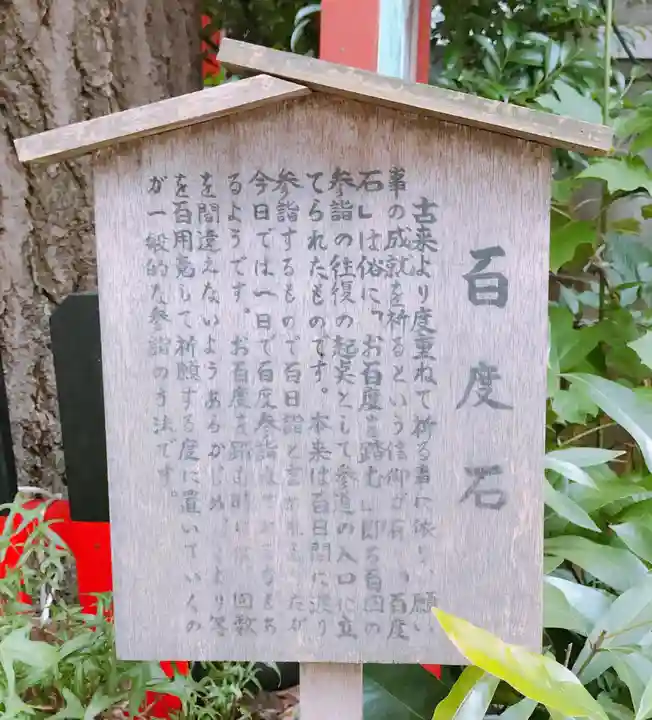 百度石
古来より度重ねて祈る事に依り、願い
事の成就を祈るという信仰が有り「百度
石」は俗に「お百度を踏む」即ち百回の
参詣の往復の起点として参道の入口に立
てられたものです。本来は百日間に渡り
参詣するもので百日詣と言われましたが
今日では一日で百度参詣
るようです。お百度を踏む時には、回数
を間違えないようあらかじめ
を百用意して祈願する度に置いていくの
が一般的な参詣の方法です。